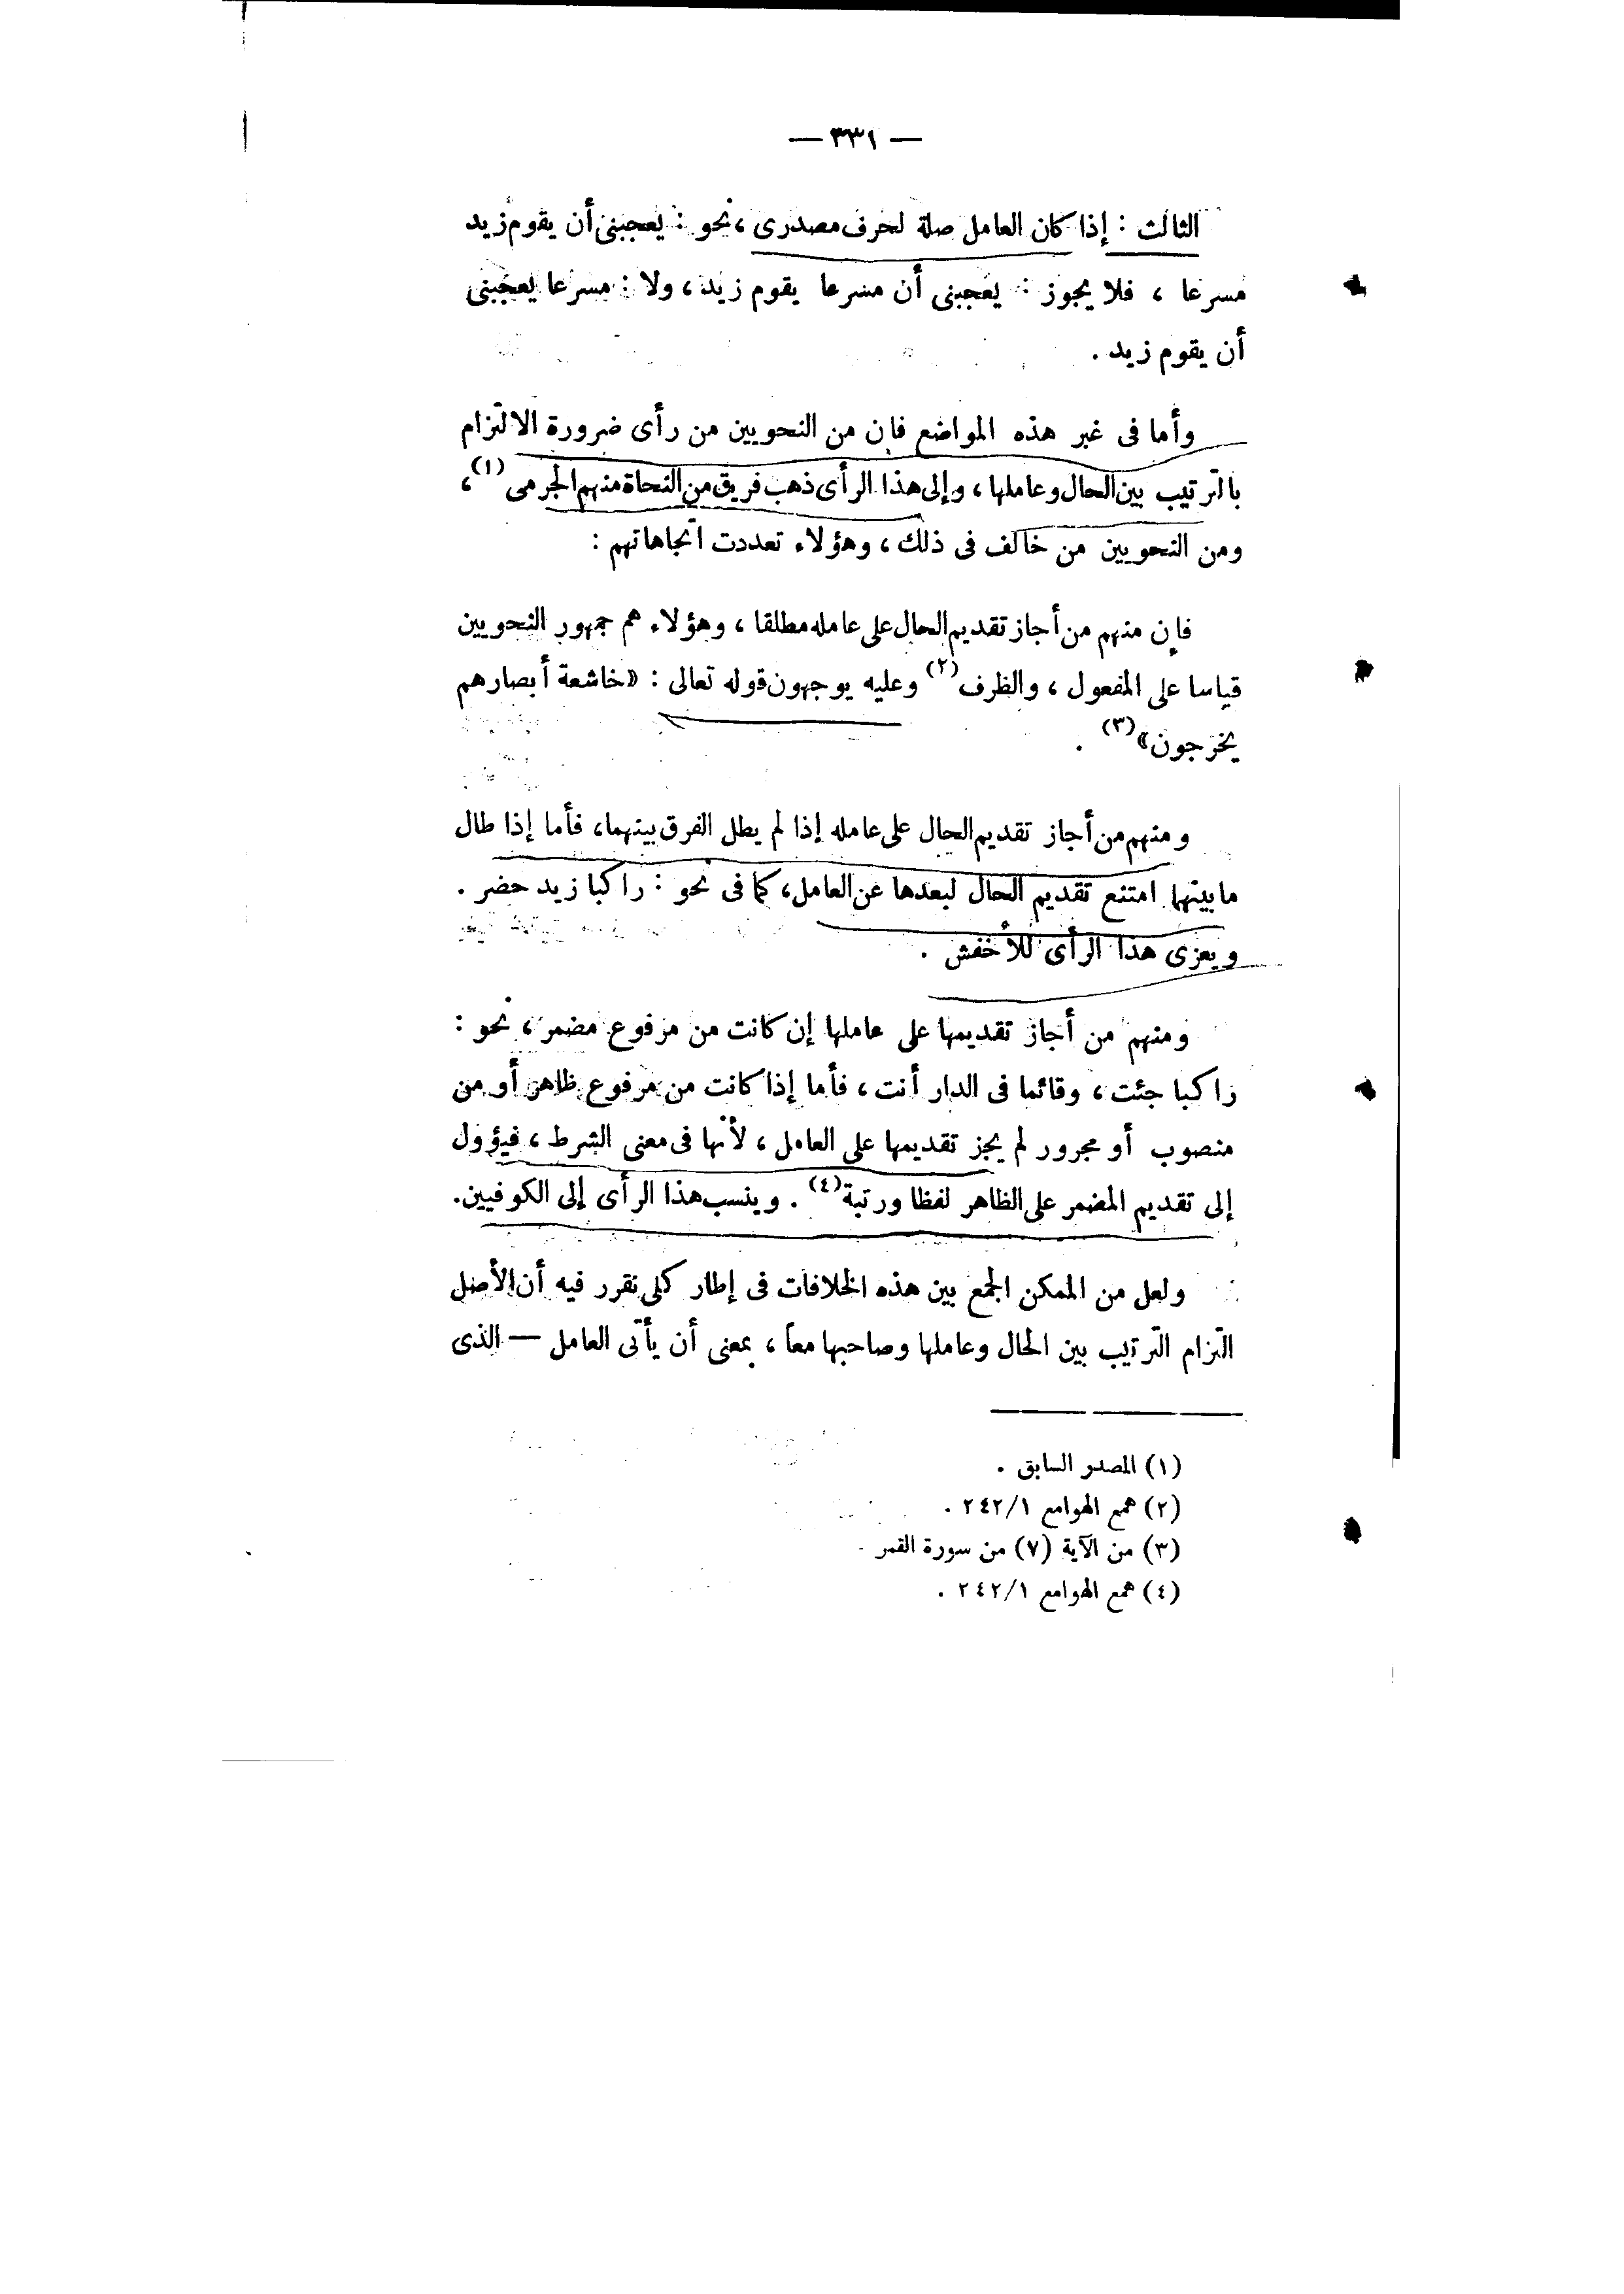 — ٣٣١ —
الثالث : إذا كان العامل صلة لحرف مصدرى ، نحو : يعجبنى أن يقوم زيد
مسرعا ، فلا يجوز : يعجبنى أن مسرعا يقوم زيد ، ولا : مسرعا يعجبنى
أن يقوم زيد .
وأما فى غير هذه المواضع فإن من النحويين من رأى ضرورة الالتزام
بالترتيب بين الحال وعاملها ، وإلى هذا الرأى ذهب فريق من النحاة منهم الجرمى (١) ،
ومن النحويين من خالف فى ذلك ، وهؤلاء تعددت اتجاهاتهم :
فإن منهم من أجاز تقديم الحال على عامله مطلقا ، وهؤلاء هم جمهور النحويين
قياسا على المفعول ، والظرف (٢) وعليه يوجهون قوله تعالى : « خاشعة أبصارهم
يخرجون » (٣) .
ومنهم من أجاز تقديم الحال على عامله إذا لم يطل الفرق بينهما ، فأما إذا طال
ما بينهما امتنع تقديم الحال لبعدها عن العامل ، كما فى نحو : راكبا زيد حضر .
ويعزى هذا الرأى للأخفش .
ومنهم من أجاز تقديمها على عاملها إن كانت من مرفوع مضمر ، نحو :
راكبا جئت ، وقائما فى الدار أنت ، فأما إذا كانت من مرفوع ظاهر أو من
منصوب أو مجرور لم يجز تقديمها على العامل ، لأنها فى معنى الشرط ، فيؤول
إلى تقديم المضمر على الظاهر لفظا ورتبة (٤) . وينسب هذا الرأى إلى الكوفيين .
ولعل من الممكن الجمع بين هذه الخلافات فى إطار كلى نقرر فيه أن الأصل
التزام الترتيب بين الحال وعاملها وصاحبها معاً ، بمعنى أن يأتى العامل — الذى
(١) المصدر السابق .
(٢) همع الهوامع ٢٤٢/١ .
(٣) من الآية (٧) من سورة القمر .
(٤) همع الهوامع ٢٤٢/١ .